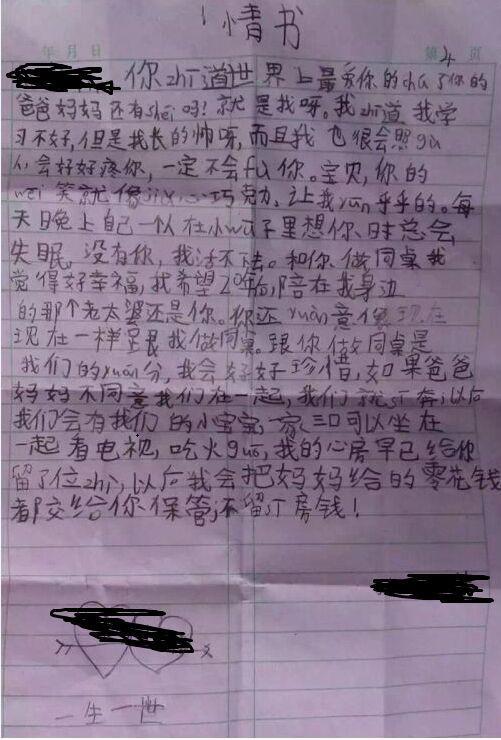 情书
年 月 日 第 4 页
你zhī道世界上最爱你的chú了你的
爸爸妈妈还有shéi吗！就是我呀。我zhī道我学
习不好，但是我长的帅呀，而且我也很会照gù
人会好好疼你，一定不会fù你。宝贝，你的
wēi笑就像jiā心巧克力，让我yūn乎乎的。每
天晚上自己一人在小wū子里想你时总会
失眠，没有你，我活不下去。和你做同桌我
觉得好幸福，我希望20年后，陪在我身边
的那个老太婆还是你。你还yuàn意像现在
现在一样跟我做同桌。跟你做同桌是
我们的yuán分，我会好好珍惜，如果爸爸
妈妈不同意我们在一起，我们就sī奔，以后
我们会有我们的小宝宝，一家三口可以坐在
一起看电视，吃火guō，我的心房早已给你
留了位zhì，以后我会把妈妈给的零花钱
都交给你保管，不留sī房钱！
一生一世